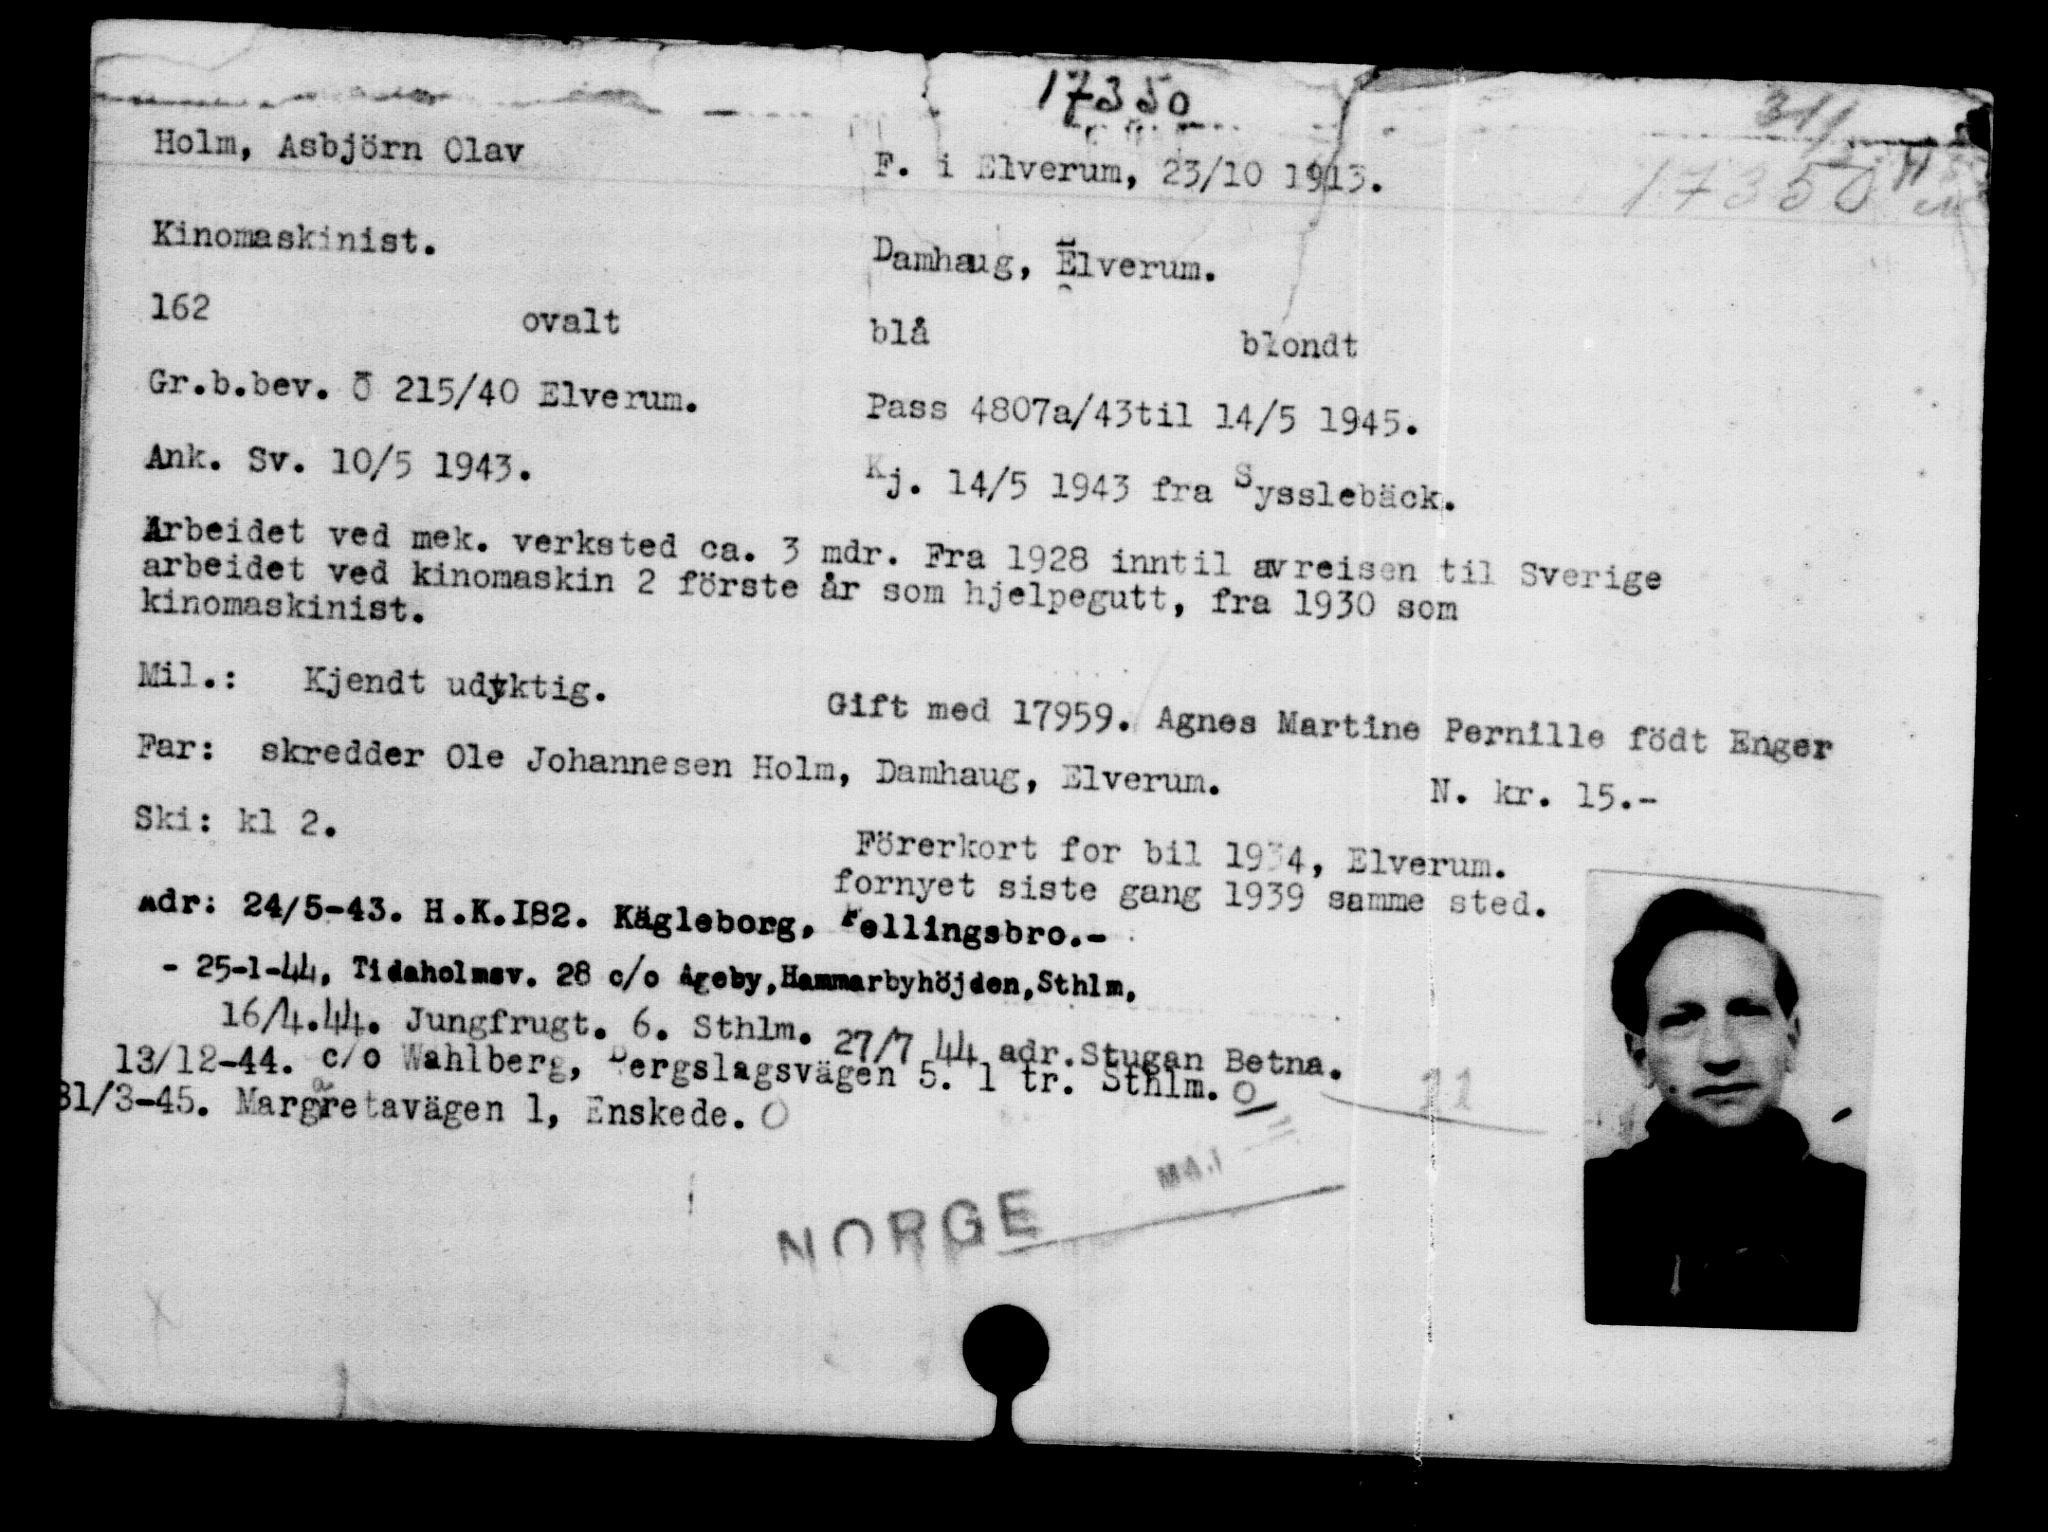 17350
311
Holm, Asbjörn Olav
F. i Elverum, 23/10 1913.
17350
Kinomaskinist.
Damhaug, Elverum.
162 ovalt blå blondt
Gr.b.bev. Ö 215/40 Elverum.
Pass 4807a/43til 14/5 1945.
Ank. Sv. 10/5 1943.
Kj. 14/5 1943 fra Sysslebäck.
Arbeidet ved mek. verksted ca. 3 mdr. Fra 1928 inntil avreisen til Sverige
arbeidet ved kinomaskin 2 förste år som hjelpegutt, fra 1930 som
kinomaskinist.
Mil.: Kjendt udyktig.
Gift med 17959. Agnes Martine Pernille födt Enger
Far: skredder Ole Johannesen Holm, Damhaug, Elverum.
N. kr. 15.-
Ski: kl 2.
Förerkort for bil 1934, Elverum.
fornyet siste gang 1939 samme sted.
Adr: 24/5-43. H.K.I82. Kägleborg, Fellingsbro.-
- 25-1-44, Tidaholmsv. 28 c/o Ageby,Hammarbyhöjden,Sthlm,
16/4.44. Jungfrugt. 6. Sthlm. 27/7 44 adr.Stugan Betna.
13/12-44. c/o Wahlberg, Bergslagsvägen 5. 1 tr. Sthlm. O
31/3-45. Margaretavägen 1, Enskede. O
11
MAJ
NORGE